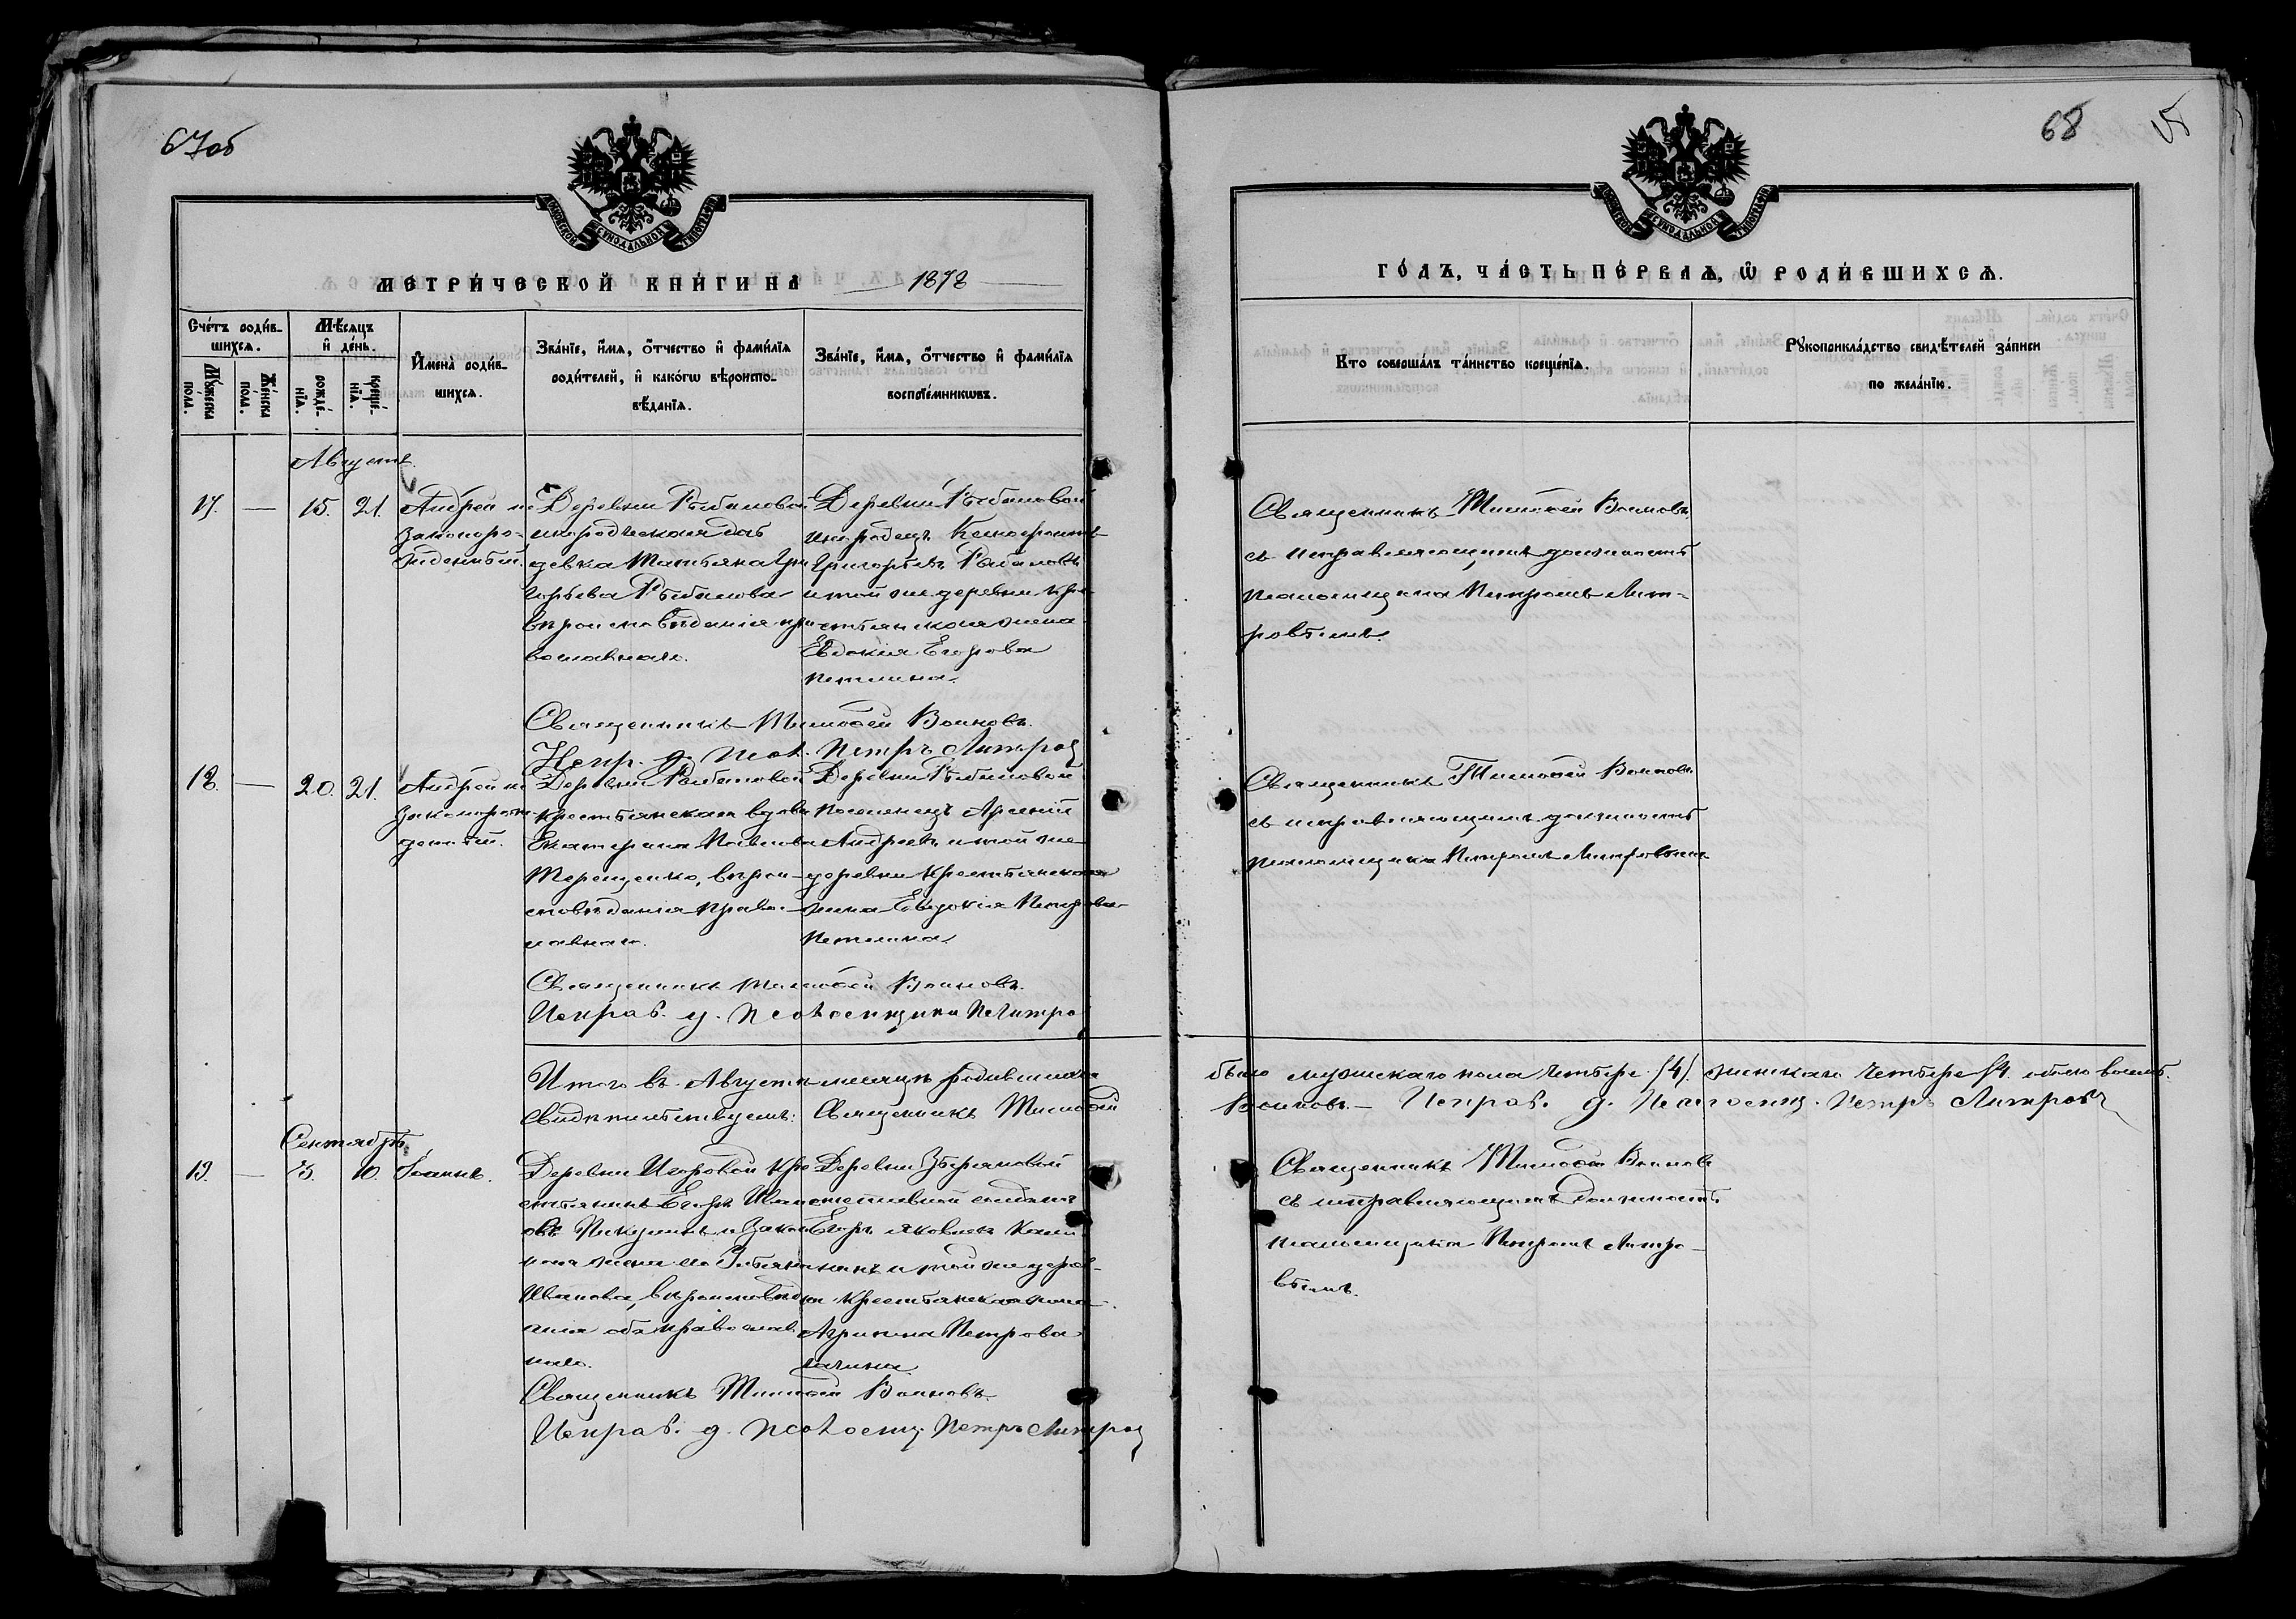 67об
МОСКОВСКОЙ СѴНОДАЛЬНОЙ ТИПОГРАФІИ
МЕТРИ́ЧЕСКОЙ КНИ́ГИ НА 1878
Сче́тъ роди́вшихся.
Мѣ́сяцъ и де́нь.
Мꙋ́жеска пола.
Же́нска пола.
рожде́нія.
креще́нія.
И҆мена̀ роди́вшихся.
Зва́нїе, и҆́мя, ѻ҆́тчество и҆ фами́лїя роди́телей, и҆ како́гѡ вѣроисповѣ́данїя.
Зва́нїе, и҆́мя, ѻ҆́тчество и҆ фами́лїя воспрїе́мникѡвъ.
Августъ
17. — 15. 21.
Андрей не
законоро-
жденный.
Деревни Рыбаловой
инородческая
девка Татьяна Гри
горьева Рыбалова
вѣроисповѣданія пра
вославнаго.
Деревни Рыбаловой
инородецъ
Григорьевъ Рыбаловъ
и той же деревни кре
стьянская жена
Евдокія Егорова
Петлина.
Священникъ Тимоѳей Воиновъ.
Испр. д. псал. Петръ Литров
18. — 20. 21.
Андрей не
законорож
денный.
Деревни Рыбаловой
крестьянская вдова
Екатерина Павлова
Терещенко, вѣрои-
споведанія правос
лавнаго.
Деревни Рыбаловой
поселенецъ Арсеній
Андреевъ и той же
деревни крестьянская
жена Евдокія Петрова
Петлина
Священникъ Тимоѳей Воиновъ.
Исправ. д. псаломщика П. Литров
Итого въ Августѣ месяцѣ родившихся
Свидѣтельствуемъ: Священникъ Тимоѳей
Сентябрь.
19. — 5. 10. Іоаннъ.
Деревни кре
стьянинъ Егоръ Иван
овъ и закон
ная жена его
Иванова, вѣроисповѣд
анія оба православ
наго.
Деревни Зыряновой
Егоръ Яковлевъ
и той же дерев-
ни крестьянская жена
Агрипина Петрова
Священникъ Тимоѳей Воиновъ.
Исправ. д. псаломщ. Петръ Литров
68
МОСКОВСКОЙ СѴНОДАЛЬНОЙ ТИПОГРАФІИ
ГО́ДЪ, ЧА́СТЬ ПЕ́РВАЯ, Ѡ҆ РОДИ́ВШИХСЯ.
Кто соверша́лъ та́инство креще́нїя.
Рꙋкоприкла́дство свидѣ́телей за́писи по жела́нїю.
Священникъ Тимоѳей Воиновъ
съ исправляющимъ должность
псаломщика Петромъ Лит-
ровымъ.
Священникъ Тимоѳей Воиновъ
съ исправляющимъ должность
псаломщика Петромъ Литровымъ
было мужскаго пола четыре /4/. женскаго четыре /4. обоего восемь.
Воиновъ. — Исправ. д. Псаломщ. Петръ Литровъ
Священникъ Тимоѳей Воиновъ
съ исправляющимъ должность
псаломщика Петромъ Литро-
вымъ.